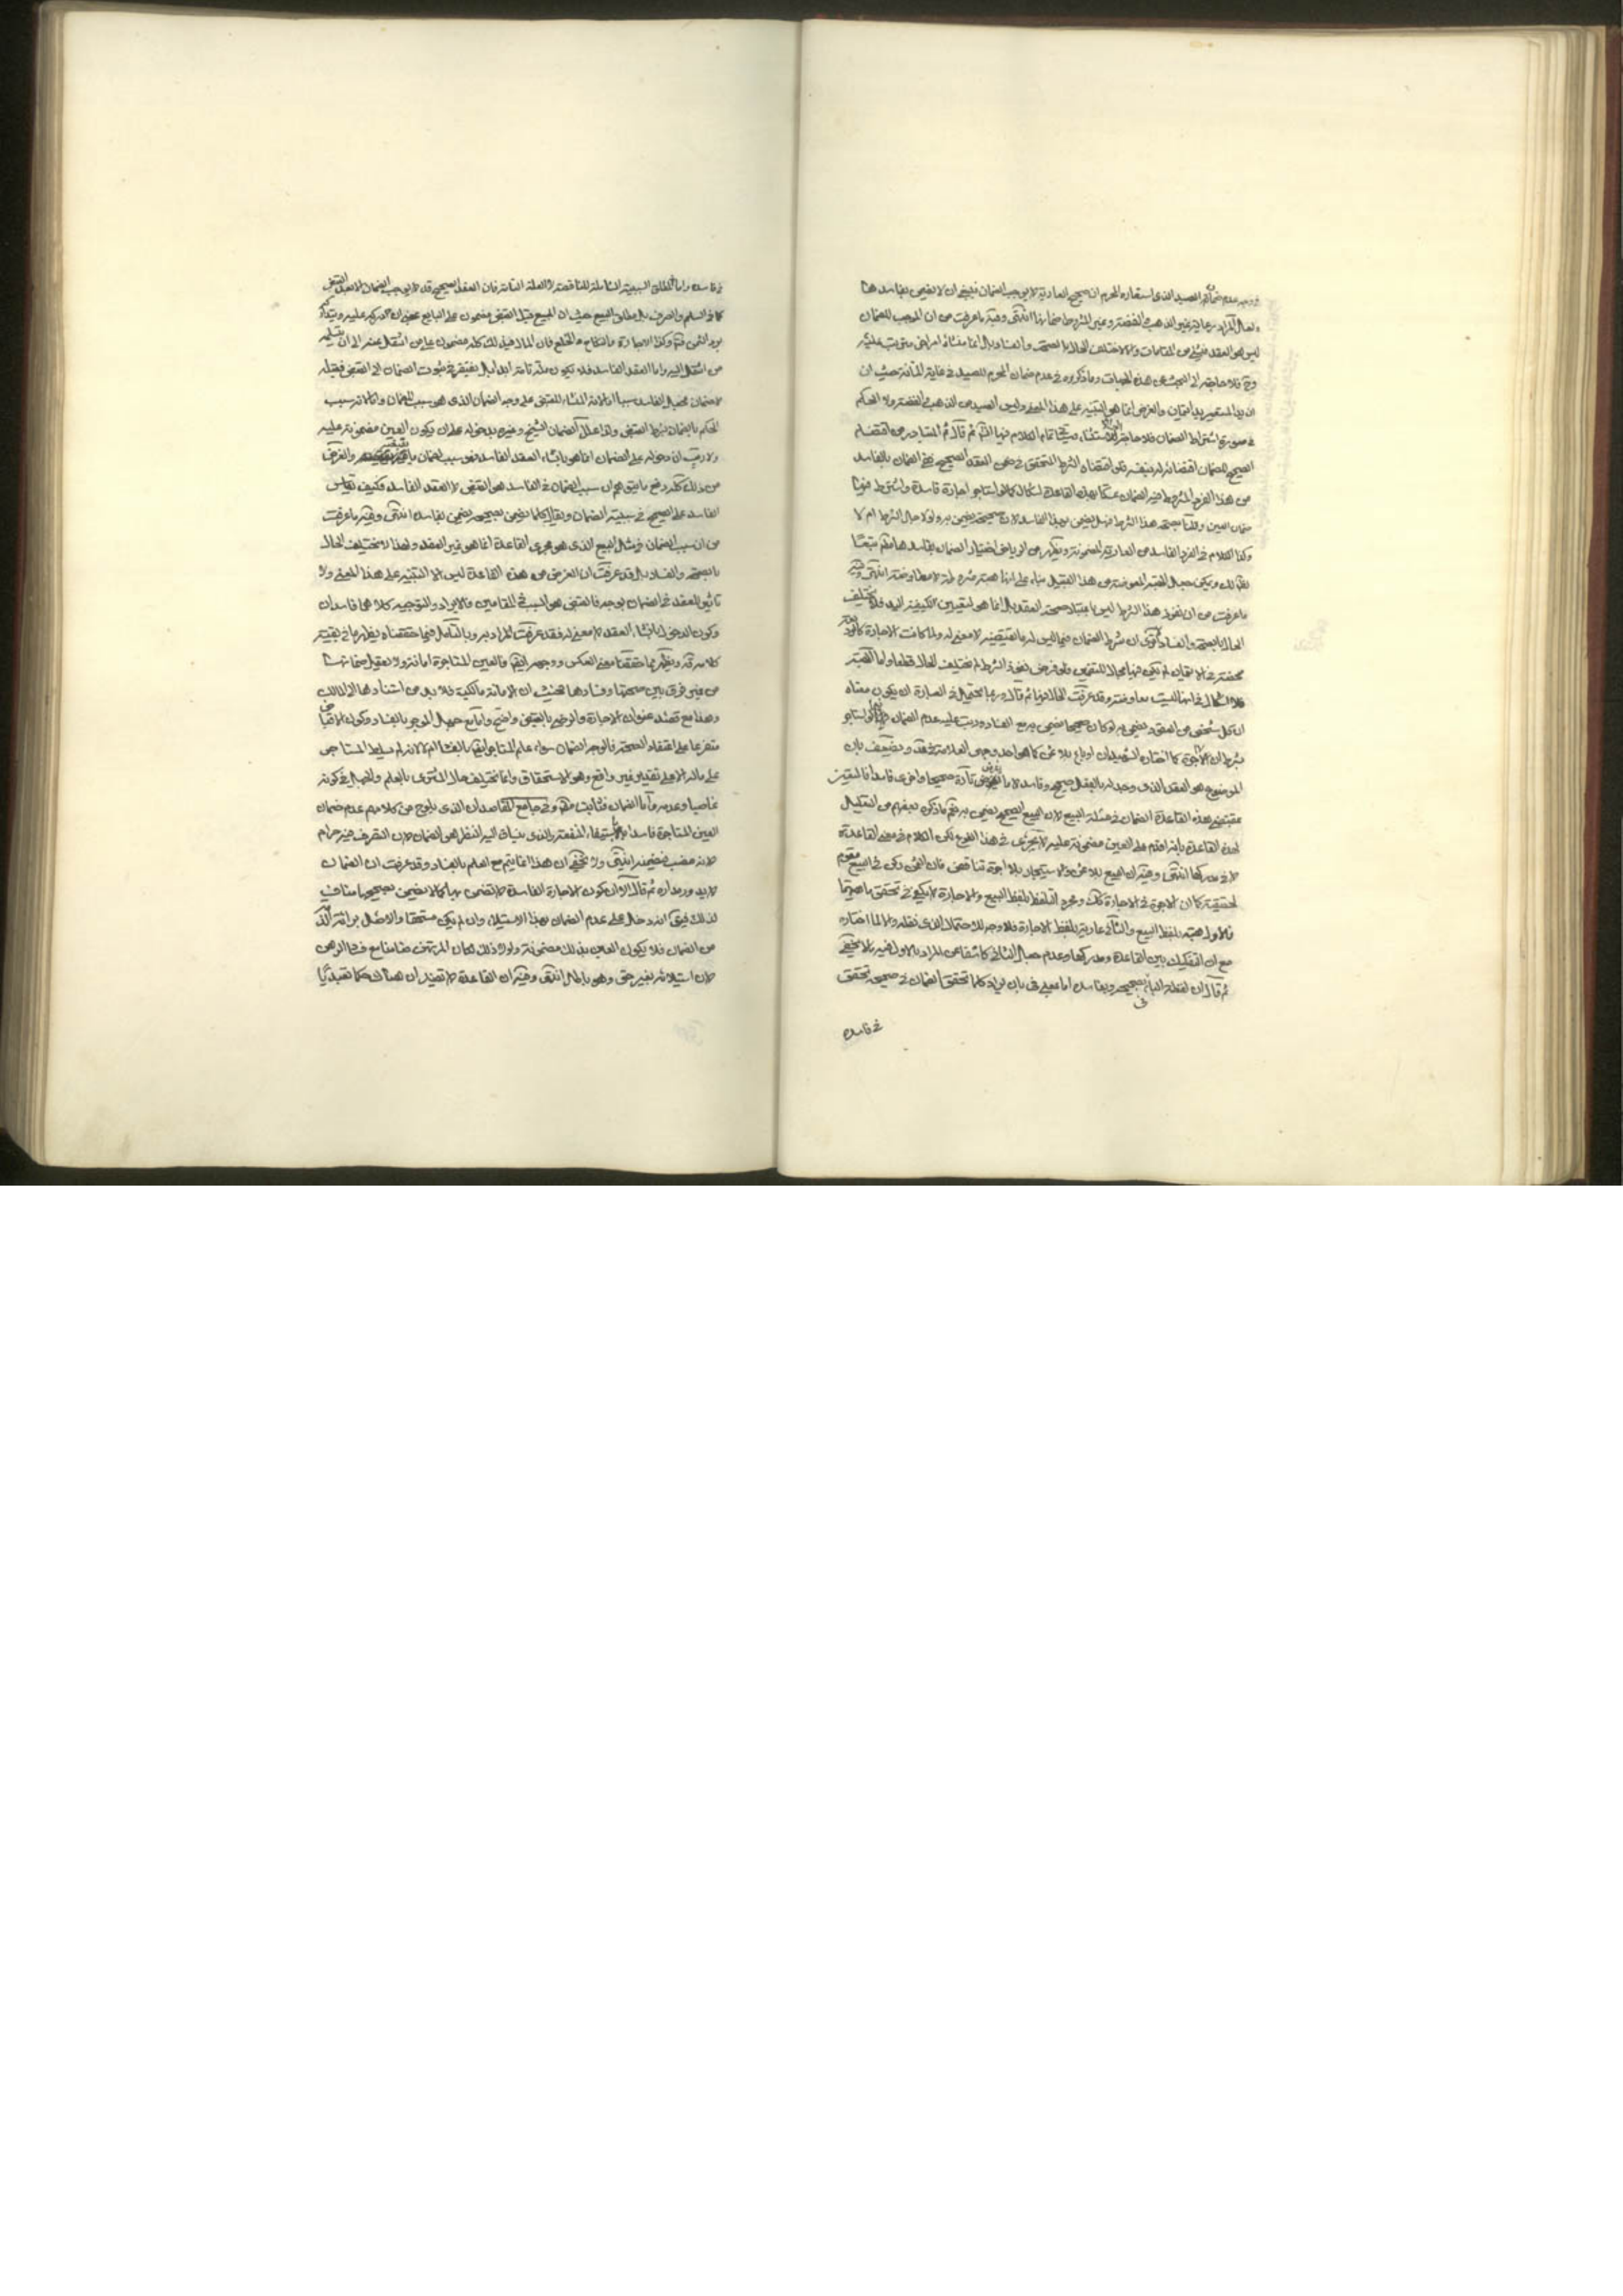 ووجه عدم ضمان الصيد الذى استعاره المحرم ان صحيح العارية لا يوجب الضمان فينبغى ان لا يضمن بفاسدها
ولعل المراد عارية غير الذهب والفضة وغير المشروط ضمانها انتهى وفيه ما عرفت من ان الموجب للضمان
ليس هو العقد فى شئ من المقامات ولا اختلاف الحال بالصحة والفساد بل انما منشاؤه امر اخر يترتب عليه
وح فلا حاجة الى البحث عن هذه الجهات وما ذكروه فى عدم ضمان المحرم للصيد فى غاية المتانة حيث ان
يد المستعير يد ائتمان والغرض انما هو التنبيه على هذا المعنى وليس الصيد من الذهب والفضة ولا الحكم
فى صورة اشتراط الضمان فلا حاجة الى الاستثناء تمام الكلام فيها انش ثم قال ثم المتبادر من اقتضاء
الصحيح للضمان اقتضائه له بنفسه فلو اقتضاه الشرط المتحقق فى ضمن العقد الصحيح ففى الضمان بالفاسد
من هذا الفرد المشروط فيه الضمان تمسكا بهذه القاعدة اشكال كما لو استاجر اجارة فاسدة واشترط فيها
ضمان العين وقلنا بصحة هذا الشرط فهل يضمن بهذا الفاسد لان صحيحه يضمن به ولو لاجل الشرط ام لا
وكذا الكلام فى الفرد الفاسد من العارية المضمونة ويظهر من الرياض اختيار الضمان بفاسدها مطلقا تبعا
لظاهر لك ويمكن جعل الهبة المعوضة من هذا القبيل بناء على انها هبة مشروطة لا معاوضة انتهى وفيه
ما عرفت من ان نفوذ هذا الشرط ليس باعتبار صحة العقد بل انما هو لتعيين الكيفية اليد فلا يختلف
الحال بالصحة والفساد فاقول ان شرط الضمان فيما ليس له ما يقتضيه لا معنى له ولما كانت الاجارة كالعارية
محضة فى الائتمان لم يكن فيها مجال للتضمين ولو فرض نفوذ الشرط لم يختلف الحال قطعا واما الهبة
فلا اشكال فى انها ليست معاوضة وقد عرفت الحال فيها ثم قال وربما يحتمل فى العبارة ان يكون معناه
ان كل شخص من العقود يضمن به لو كان صحيحا يضمن به مع الفساد ورتب عليه عدم الضمان فيما لو استاجر
بشرط ان لا اجرة كما اختاره الشهيدان او باع بلا ثمن كما هو احد وجهى العلامة فى عد ويضعف بان
الموضوع هو العقد الذى وجد له بالفعل صحيح وفاسد لا ما يفرض تارة صحيحا واخرى فاسدا فالمتعين
بمقتضى هذه القاعدة الضمان فى مسئلة البيع لان البيع الصحيح يضمن به نعم ما ذكره بعضهم من التعليل
لهذه القاعدة بانه اقدم على العين مضمونة عليه لا يجرى فى هذا الفرع لكن الكلام فى معنى القاعدة
لا فى مدركها انتهى وفيه ان البيع بلا ثمن والاستيجار بلا اجرة تناقض فان الثمن ركن فى البيع مقوم
لحقيقته كما ان الاجرة فى الاجارة كك ومجرد التلفظ بلفظ البيع والاجارة لا يكفى فى تحقق ماهيتهما
فالاول هبة بلفظ البيع والثانى عارية بلفظ الاجارة فلا وجه للاحتمال الذى نقله ولا لما اختاره
مع ان التفكيك بين القاعدة ومدركها وعدم جعل الثانى كاشفا عن المراد بالاول فيه ما لا يخفى
ثم قال ان لفظة الباء فى بصحيحه وبفاسده اما بمعنى فى بان يراد كلما تحقق الضمان فى صحيحه تحقق
فى فاسده
فى فاسده واما لمطلق السببية الشاملة للناقصة لا العلة التامة فان العقد الصحيح قد لا يوجب الضمان الا بعد القبض
كما فى السلم والصرف بل مطلق البيع حيث ان المبيع قبل القبض مضمون على البايع بمعنى ان دركه عليه ويتداركه
برد الثمن فت وكذا الاجارة والنكاح والخلع فان المال فى ذلك كله مضمون على من انتقل عنه الى ان يتسلمه
من انتقل اليه واما العقد الفاسد فلا يكون علة تامة ابدا بل يفتقر فى ثبوت الضمان الى القبض فقبله
لا ضمان فجعل الفاسد سببا اما لانه المنشاء للقبض على وجه الضمان الذى هو سبب للضمان واما لانه سبب
الحكم بالضمان بشرط القبض ولذا علل الضمان الشيخ وغيره بدخوله على ان يكون العين مضمونة عليه
ولا ريب ان دخوله على الضمان انما هو بانشاء العقد الفاسد فهو سبب لضمان ما يقبضه والغرض
من ذلك كله دفع ما يتوهم ان سبب الضمان فى الفاسد هو القبض لا العقد الفاسد فكيف يقاس
الفاسد على الصحيح فى سببية الضمان ويقال كلما يضمن بصحيحه يضمن بفاسده انتهى وفيه ما عرفت
من ان سبب الضمان فى مثل البيع الذى هو مجرى القاعدة انما هو غير العقد ولهذا لا يختلف الحال
بالصحة والفساد بل قد عرفت ان الغرض من هذه القاعدة ليس الا التنبيه على هذا المعنى ولا
تاثير للعقد فى الضمان بوجه فالقبض هو السبب فى المقامين فالايراد والتوجيه كلاهما فاسدان
وكون الدخول بانشاء العقد لا معنى له فقد عرفت المراد به وبالتامل فيما حققناه يظهر ما فى بقية
كلامه قده ويظهر مما حققنا معنى العكس ووجهه ايضا فالعين المستاجرة امانة ولا يعقل ضمانها
من غير فرق بين صحتها وفسادها فحيث ان الامانة مالكية فلا بد من استنادها الى المالك
وهذا مع قصد عنوان الاجارة والرضى بالقبض واضح واما مع جهل الموجر بالفساد وكون الاقباض
متفرعا على اعتقاد الصحة فالوجه الضمان سواء علم المستاجر ايضا بالفساد ام لا لانه لم يسلط المستاجر
على ماله الا على تقدير غير واقع وهو الاستحقاق وانما يختلف حال المشترى بالعلم والجهل فى كونه
غاصبا وعدمه واما الضمان فثابت مطلقا وفى جامع المقاصد ان الذى يلوح من كلامهم عدم ضمان
العين المستاجرة فاسدا باستيفاء المنفعة والذى ينساق اليه النظر هو الضمان لان التصرف فيه حرام
لانه غصب فيضمنه انتهى ولا يخفى ان هذا انما يتم مع العلم بالفساد وقد عرفت ان الضمان
لا يدور مداره ثم قال الا ان كون الاجارة الفاسدة لا تضمن بها كما لا يضمن بصحيحها مناف
لذلك فيق انه دخل على عدم الضمان بهذا الاستيلاء وان لم يكن مستحقا والاصل براءة الذمة
من الضمان فلا يكون العين بذلك مضمونة ولولا ذلك لكان المرتهن ضامنا مع فساد الرهن
لان استيلائه بغير حق وهو باطل انتهى وفيه ان القاعدة لا تفيد ان هناك حكما تعبديا